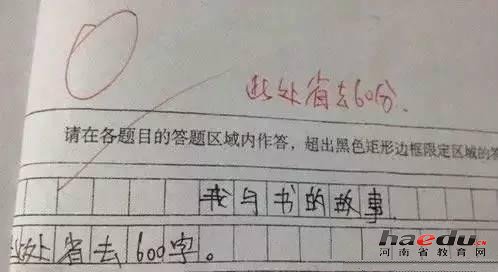 此处省去60分.
请在各题目的答题区域内作答，超出黑色矩形边框限定区域的答
我与书的故事.
此处省去600字。
haedu.cn
河南省教育网